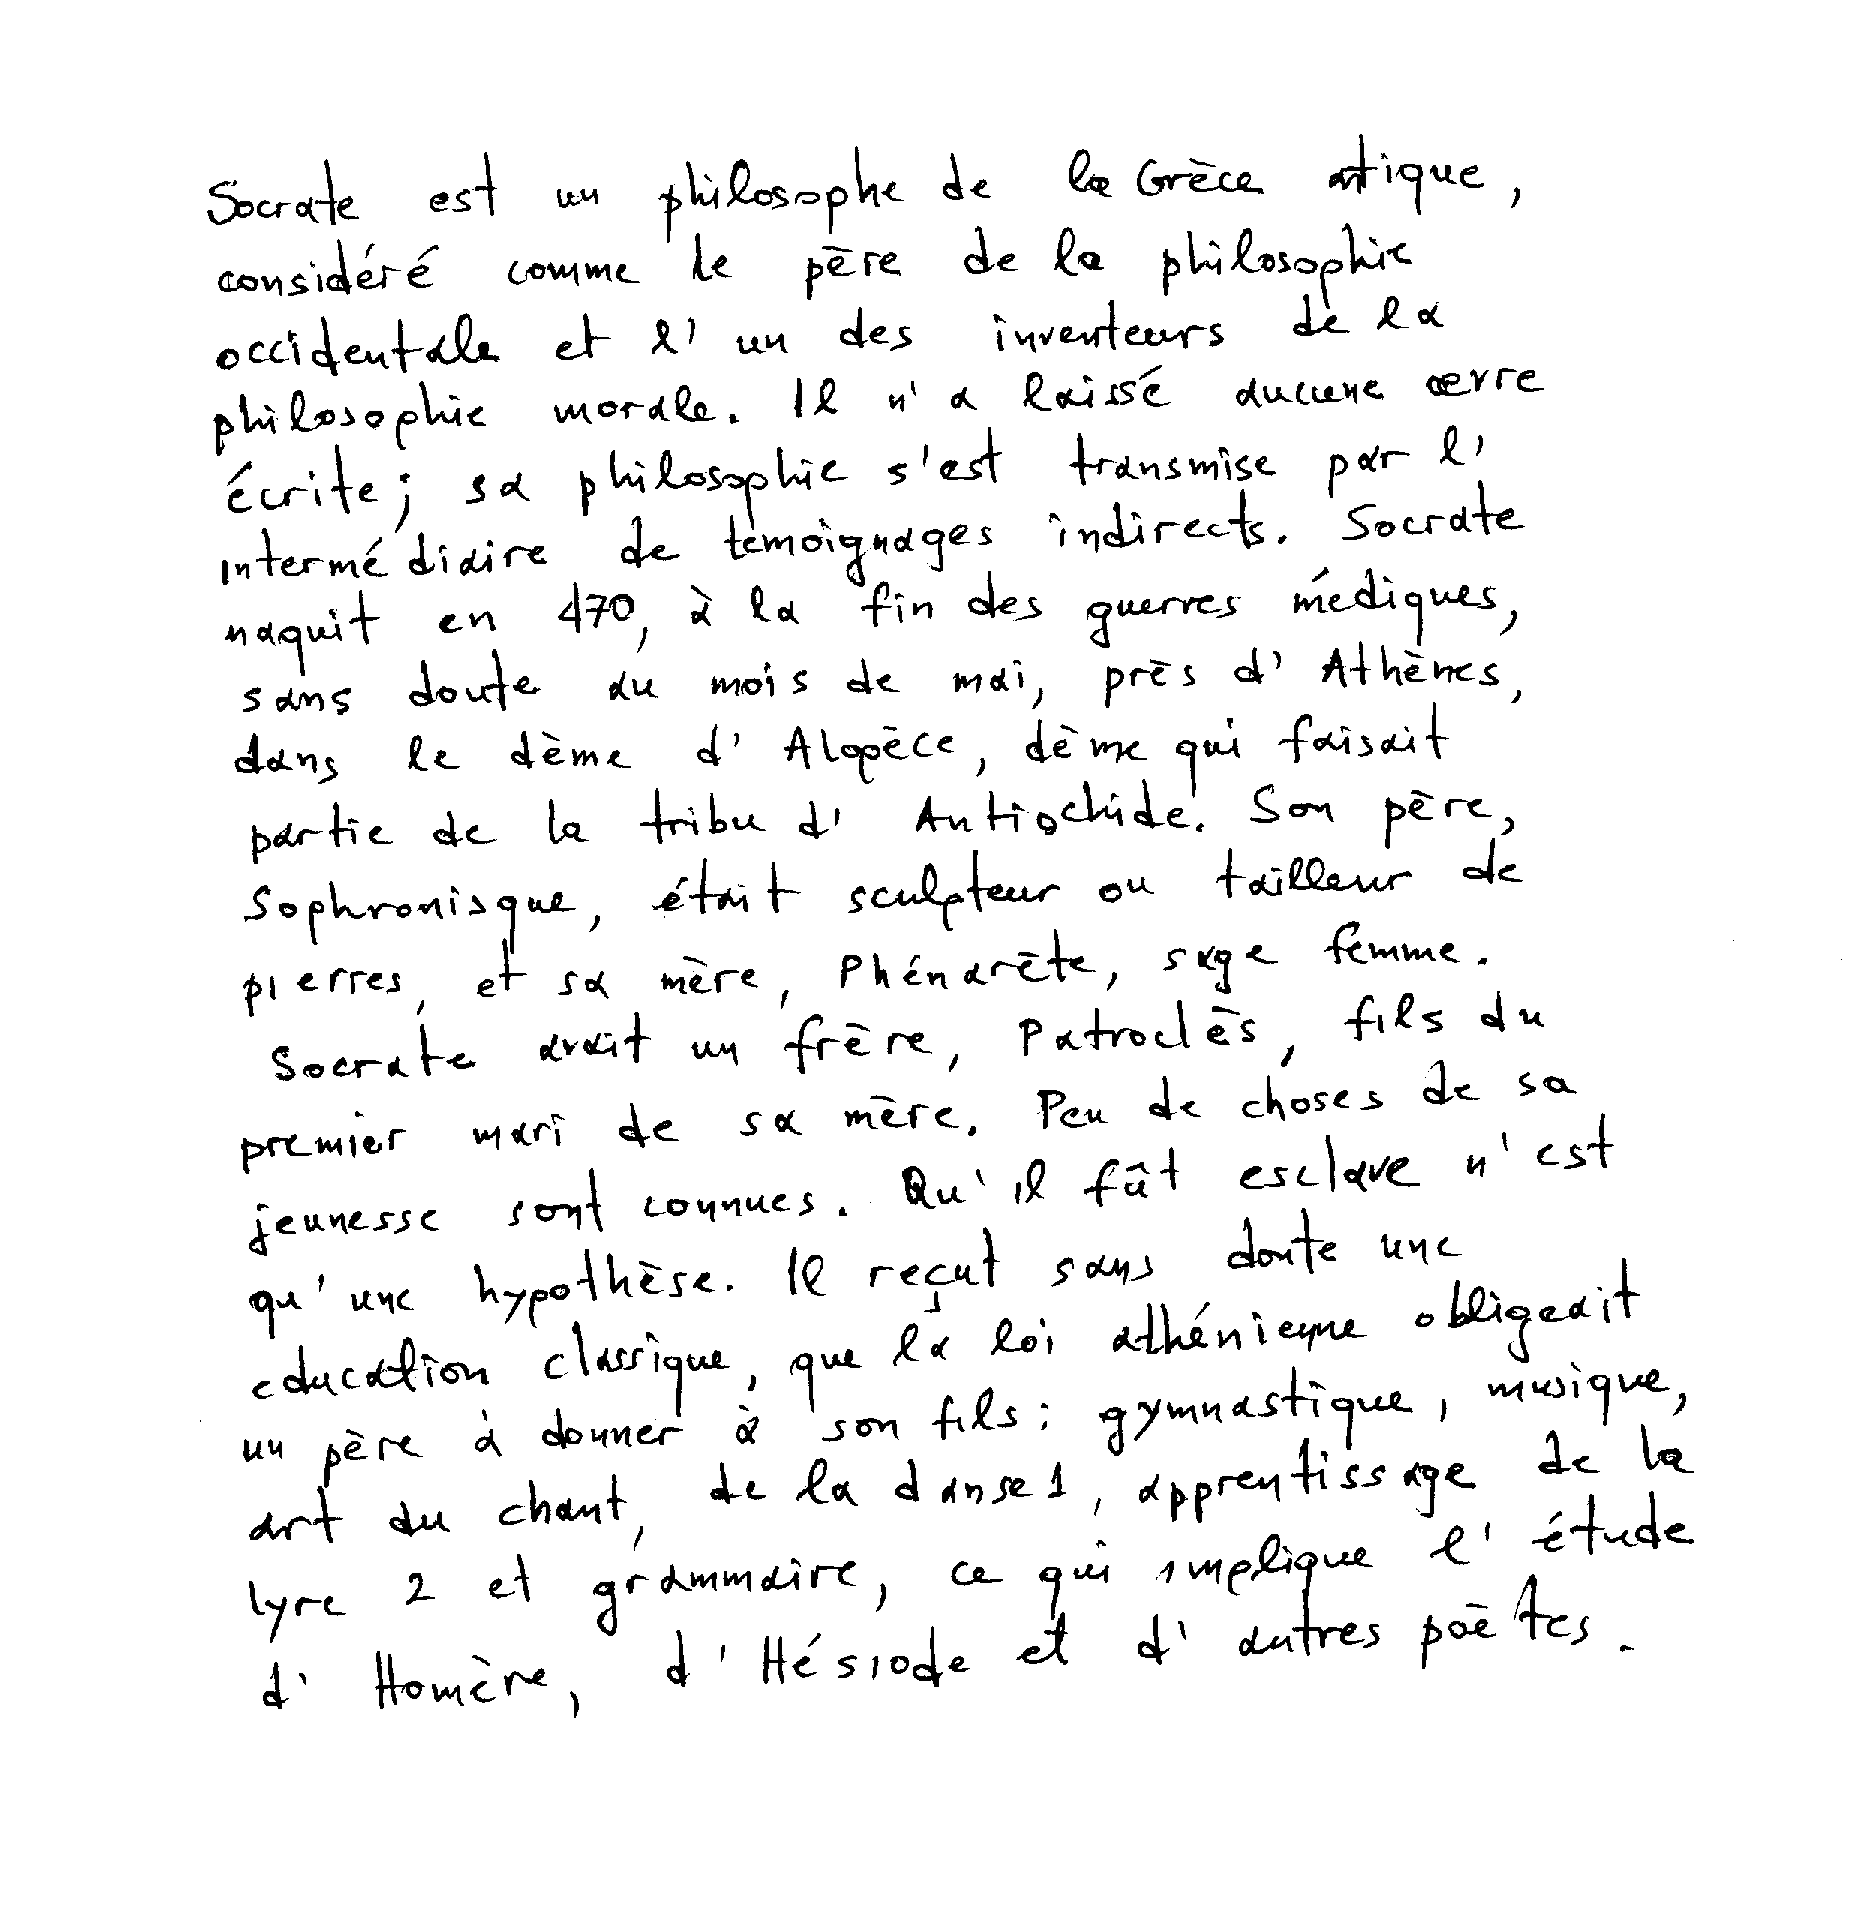 Socrate est un philosophe de la Grèce atique,
considéré comme le père de la philosophie
occidentale et l'un des inventeurs de la
philosophie morale. Il n'a laissé aucune œvre
écrite; sa philosophie s'est transmise par l'
intermédiaire de temoignages indirects. Socrate
naquit en 470, à la fin des guerres médiques,
sans doute au mois de mai, près d'Athènes,
dans le dème d'Alopèce, dème qui faisait
partie de la tribu d'Antiochide. Son père,
Sophronisque, était sculpteur ou tailleur de
pierres, et sa mère, Phénarète, sage femme.
Socrate avait un frère, Patroclès, fils du
premier mari de sa mère. Peu de choses de sa
jeunesse sont connues. Qu'il fût esclave n'est
qu'une hypothèse. Il reçut sans doute une
education classique, que la loi athénienne obligeait
un père à donner à son fils: gymnastique, musique,
art du chant, de la danse1, apprentissage de la
lyre 2 et grammaire, ce qui implique l'étude
d'Homère, d'Hésiode et d'autres poètes.